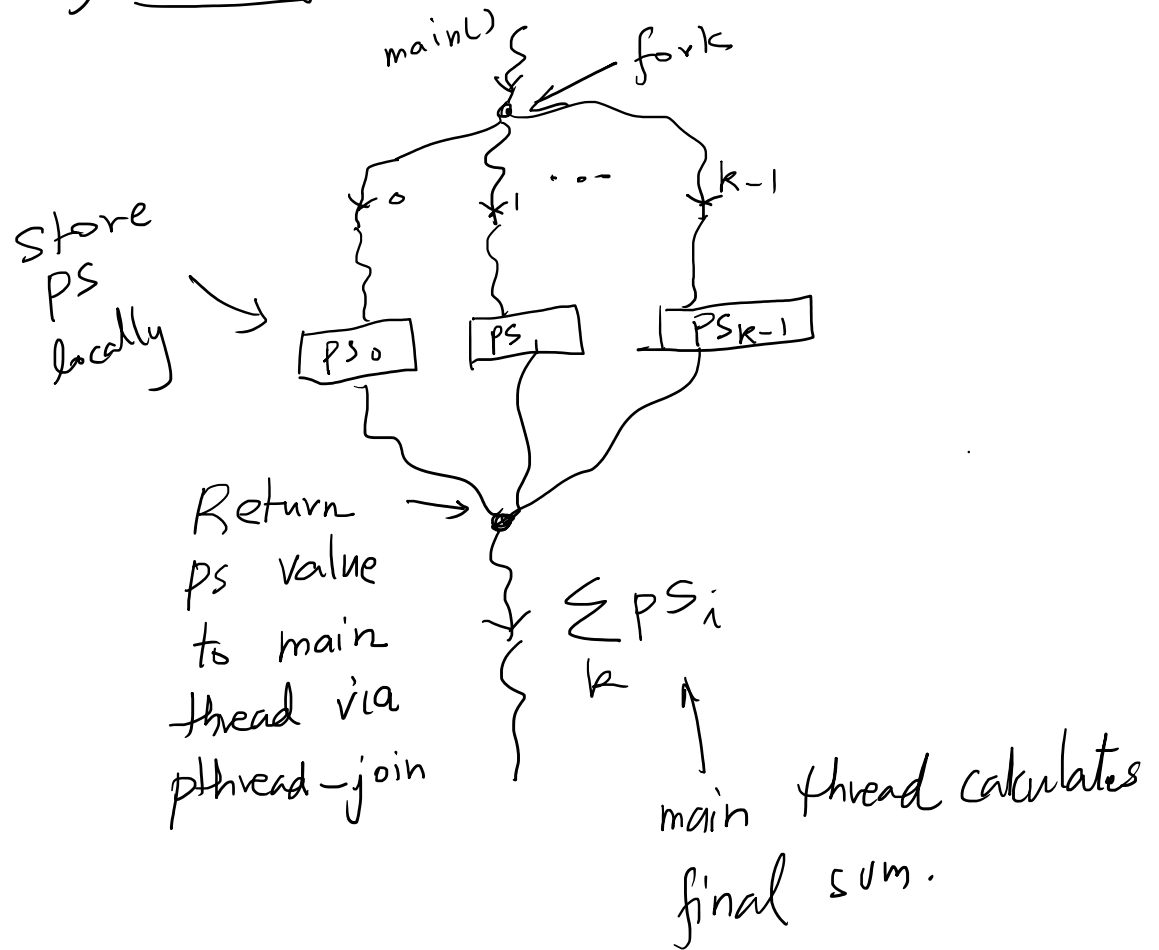 main()
fork
0
1
...
k-1
Store
ps
locally
ps0
ps1
psk-1
Return
ps value
to main
thread via
pthread-join
Σ psi
k
main thread calculates
final sum.